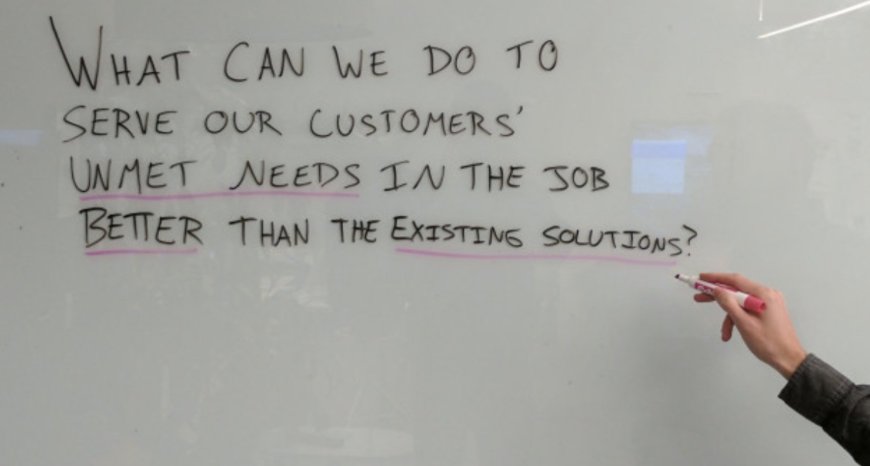 WHAT CAN WE DO TO
SERVE OUR CUSTOMERS'
UNMET NEEDS IN THE JOB
BETTER THAN THE EXISTING SOLUTIONS?